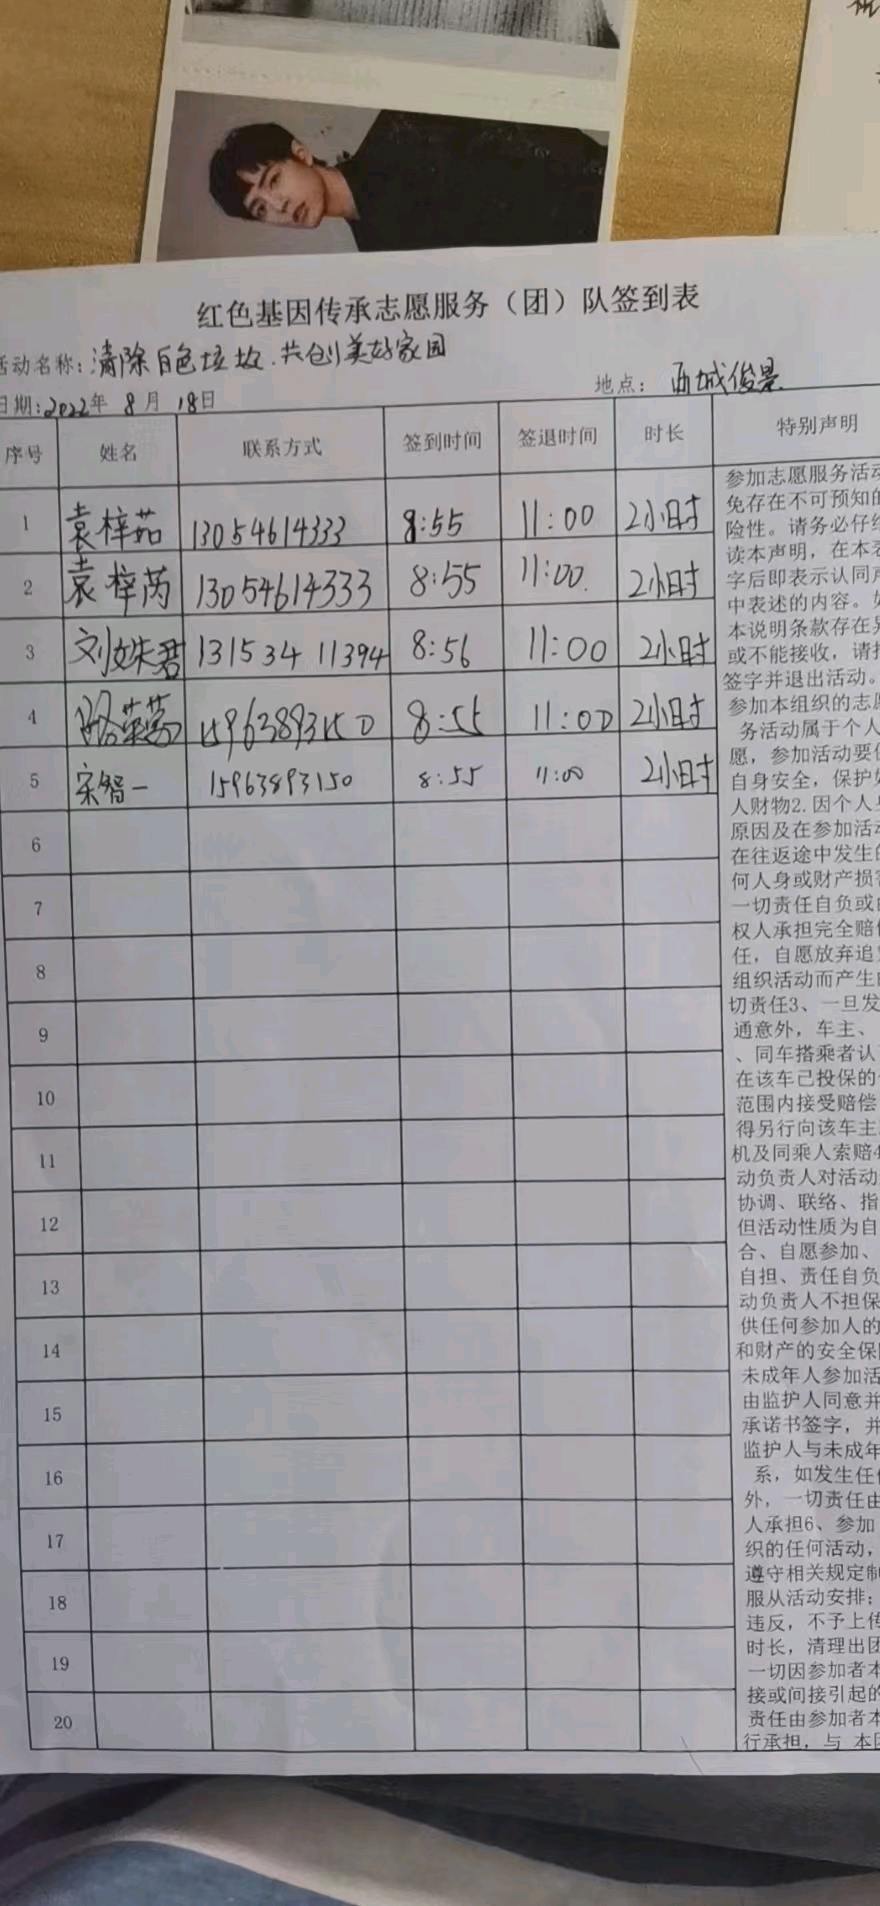 红色基因传承志愿服务（团）队签到表
活动名称：清除白色垃圾.共创美好家园
地点： 西城俊景
日期：2022年 8月 18日
序号 姓名 联系方式 签到时间 签退时间 时长 特别声明
1 袁梓茹 13054614333 8:55 11:00 2小时
2 袁梓芮 13054614333 8:55 11:00 2小时
3 刘姝君 13153411394 8:56 11:00 2小时
4 15963893150 8:55 11:00 2小时
5 宋智一 15963893150 8:55 11:00 2小时
6
7
8
9
10
11
12
13
14
15
16
17
18
19
20
参加志愿服务活动
免存在不可预知的
险性。请务必仔细
读本声明，在本表
字后即表示认同声
中表述的内容。如
本说明条款存在异
或不能接收，请拒
签字并退出活动。
参加本组织的志愿
务活动属于个人
愿，参加活动要保
自身安全，保护好
人财物2.因个人身
原因及在参加活动
在往返途中发生的
何人身或财产损害
一切责任自负或由
权人承担完全赔偿
任，自愿放弃追究
组织活动而产生的
切责任3、一旦发
通意外，车主、
、同车搭乘者认可
在该车己投保的保
范围内接受赔偿
得另行向该车主
机及同乘人索赔4
动负责人对活动
协调、联络、指
但活动性质为自
合、自愿参加、
自担、责任自负
动负责人不担保
供任何参加人的
和财产的安全保障
未成年人参加活
由监护人同意并
承诺书签字，并
监护人与未成年
系，如发生任何
外，一切责任由
人承担6、参加
织的任何活动，
遵守相关规定制
服从活动安排；
违反，不予上传
时长，清理出团
一切因参加者本
接或间接引起的
责任由参加者本
行承担，与 本团